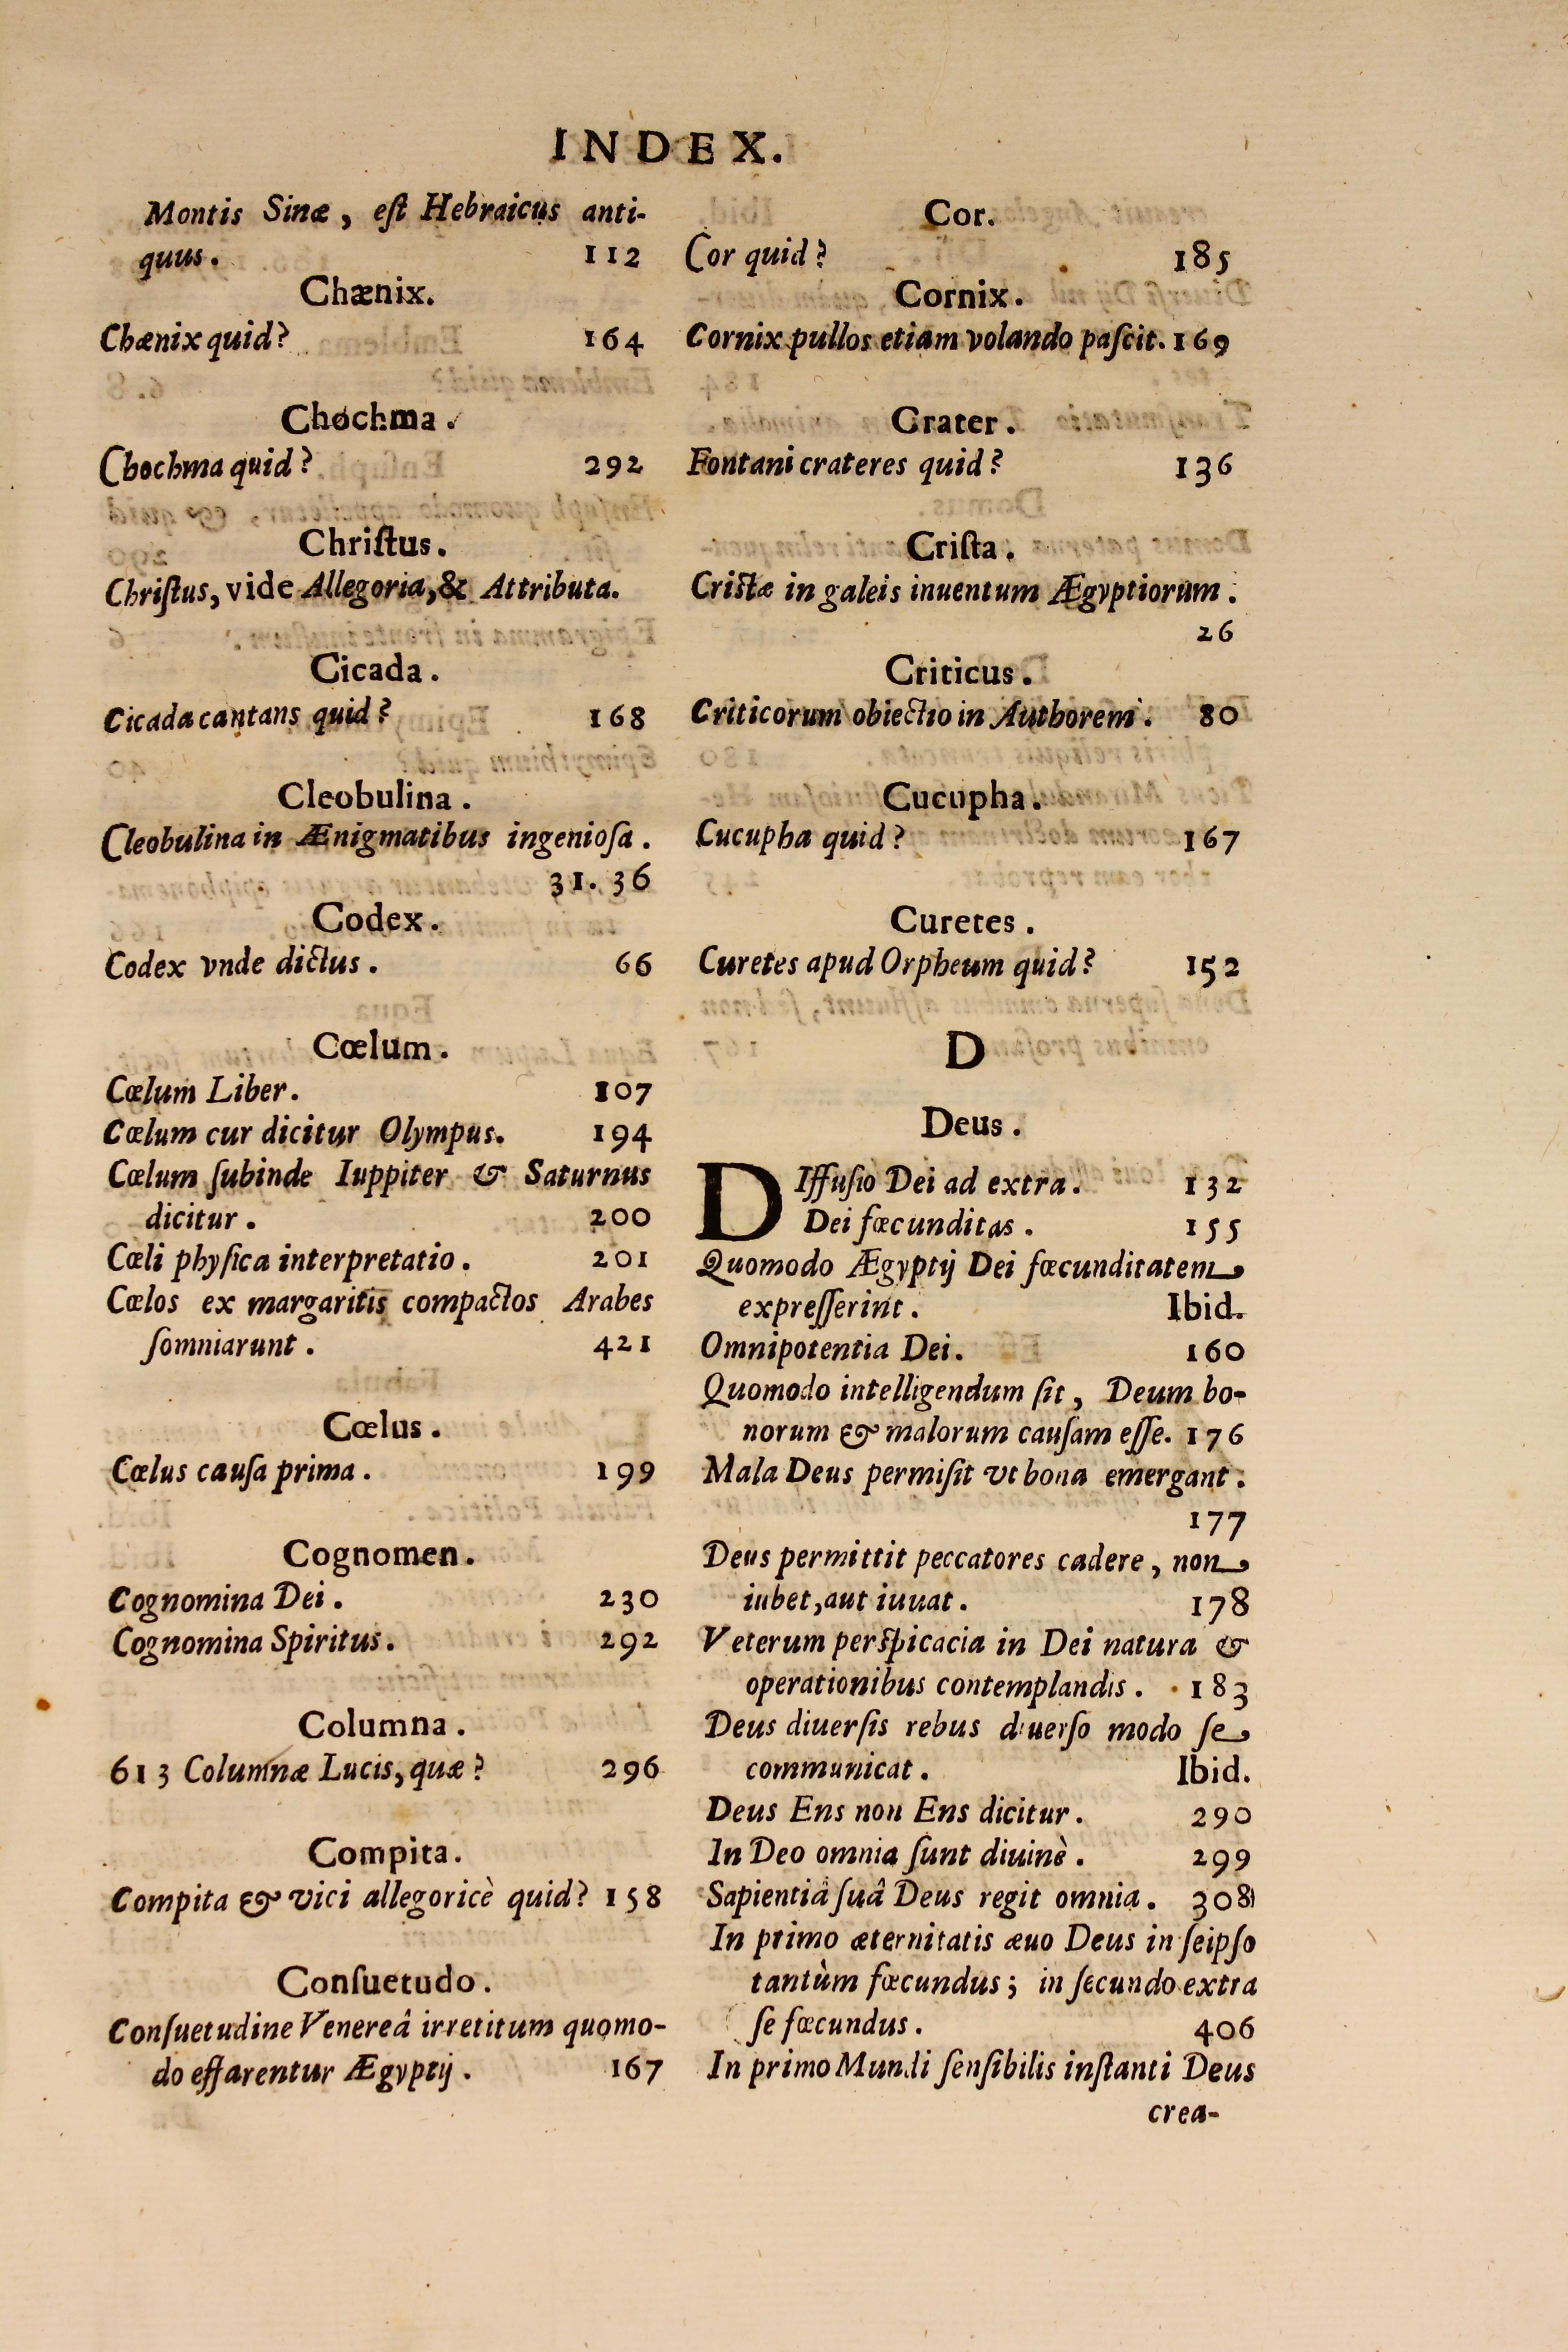 INDEX.
Montis Sinæ, eſt Hebraicus anti-
quus. 112
Chænix.
Chænix quid? 164
Chochma.
Chochma quid? 292
Chriſtus.
Chriſtus, vide Allegoria, & Attributa.
Cicada.
Cicada cantans quid? 168
Cleobulina.
Cleobulina in Ænigmatibus ingenioſa.
31. 36
Codex.
Codex vnde dictus. 66
Cœlum.
Cœlum Liber. 107
Cœlum cur dicitur Olympus. 194
Cœlum ſubinde Iuppiter & Saturnus
dicitur. 200
Cœli phyſica interpretatio. 201
Cœlos ex margaritis compactos Arabes
ſomniarunt. 421
Cœlus.
Cœlus cauſa prima. 199
Cognomen.
Cognomina Dei. 230
Cognomina Spiritus. 292
Columna.
613 Columnæ Lucis, quæ? 296
Compita.
Compita & vici allegoricè quid? 158
Conſuetudo.
Conſuetudine Venereâ irretitum quomo-
do effarentur Ægyptij. 167
Cor.
Cor quid? 185
Cornix.
Cornix pullos etiam volando paſcit. 169
Crater.
Fontani crateres quid? 136
Criſta.
Criſtæ in galeis inuentum Ægyptiorum.
26
Criticus.
Criticorum obiectio in Authorem. 80
Cucupha.
Cucupha quid? 167
Curetes.
Curetes apud Orpheum quid? 152
D
Deus.
DIffuſio Dei ad extra. 132
Dei fœcunditas. 155
Quomodo Ægyptij Dei fœcunditatem
expreſſerint. Ibid.
Omnipotentia Dei. 160
Quomodo intelligendum ſit, Deum bo-
norum & malorum cauſam eſſe. 176
Mala Deus permiſit vt bona emergant.
177
Deus permittit peccatores cadere, non
iubet, aut iuuat. 178
Veterum perſpicacia in Dei natura &
operationibus contemplandis. 183
Deus diuerſis rebus diuerſo modo ſe
communicat. Ibid.
Deus Ens non Ens dicitur. 290
In Deo omnia ſunt diuinè. 299
Sapientiâ ſuâ Deus regit omnia. 308
In primo æternitatis æuo Deus in ſeipſo
tantùm fœcundus; in ſecundo extra
ſe fœcundus. 406
In primo Mundi ſenſibilis inſtanti Deus
crea-